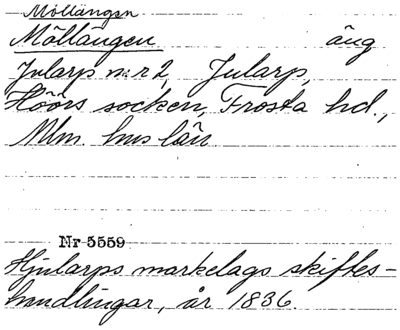 Möllängsn
Möllängen äng
Jularp n:r 2, Jularp,
Höörs socken, Frosta hd.,
Mlm hus län
Nr 5559
Hjularps markelags skiftes-
handlingar, år 1836.